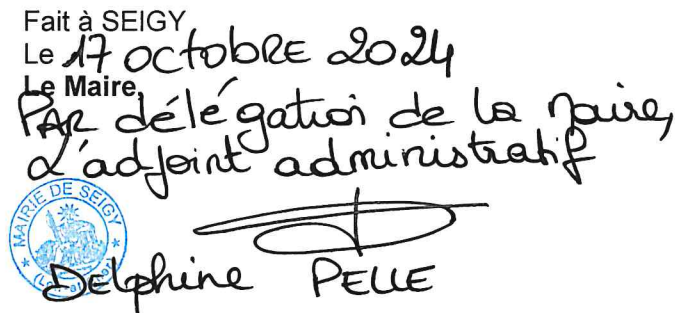 Fait à SEIGY
Le 17 octobre 2024
Le Maire,
PAR délégation de la Maire,
L'adjoint administratif
MAIRIE DE SEIGY
(Loir-et-Cher)
Delphine PELLE